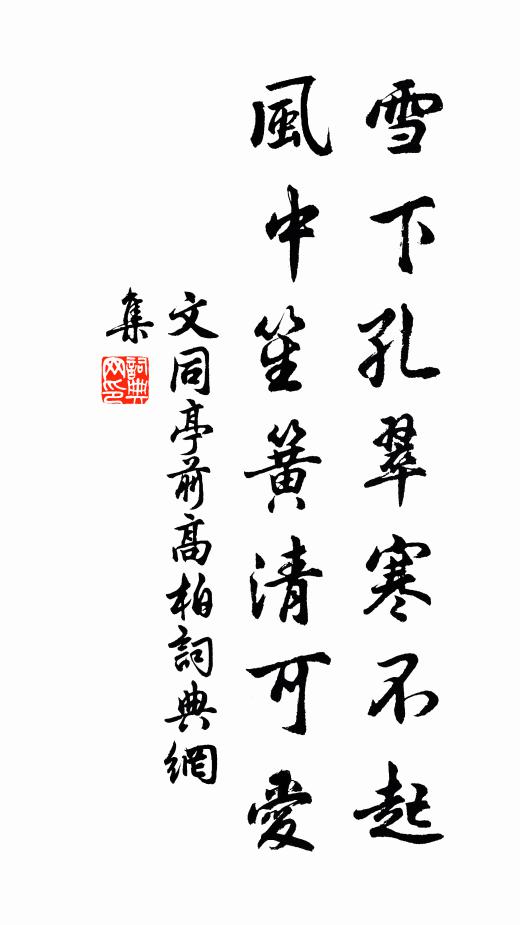 雪下孔翠寒不起
風中笙簧清可愛
文同亭前高柏詞典網
集
詞典
网印